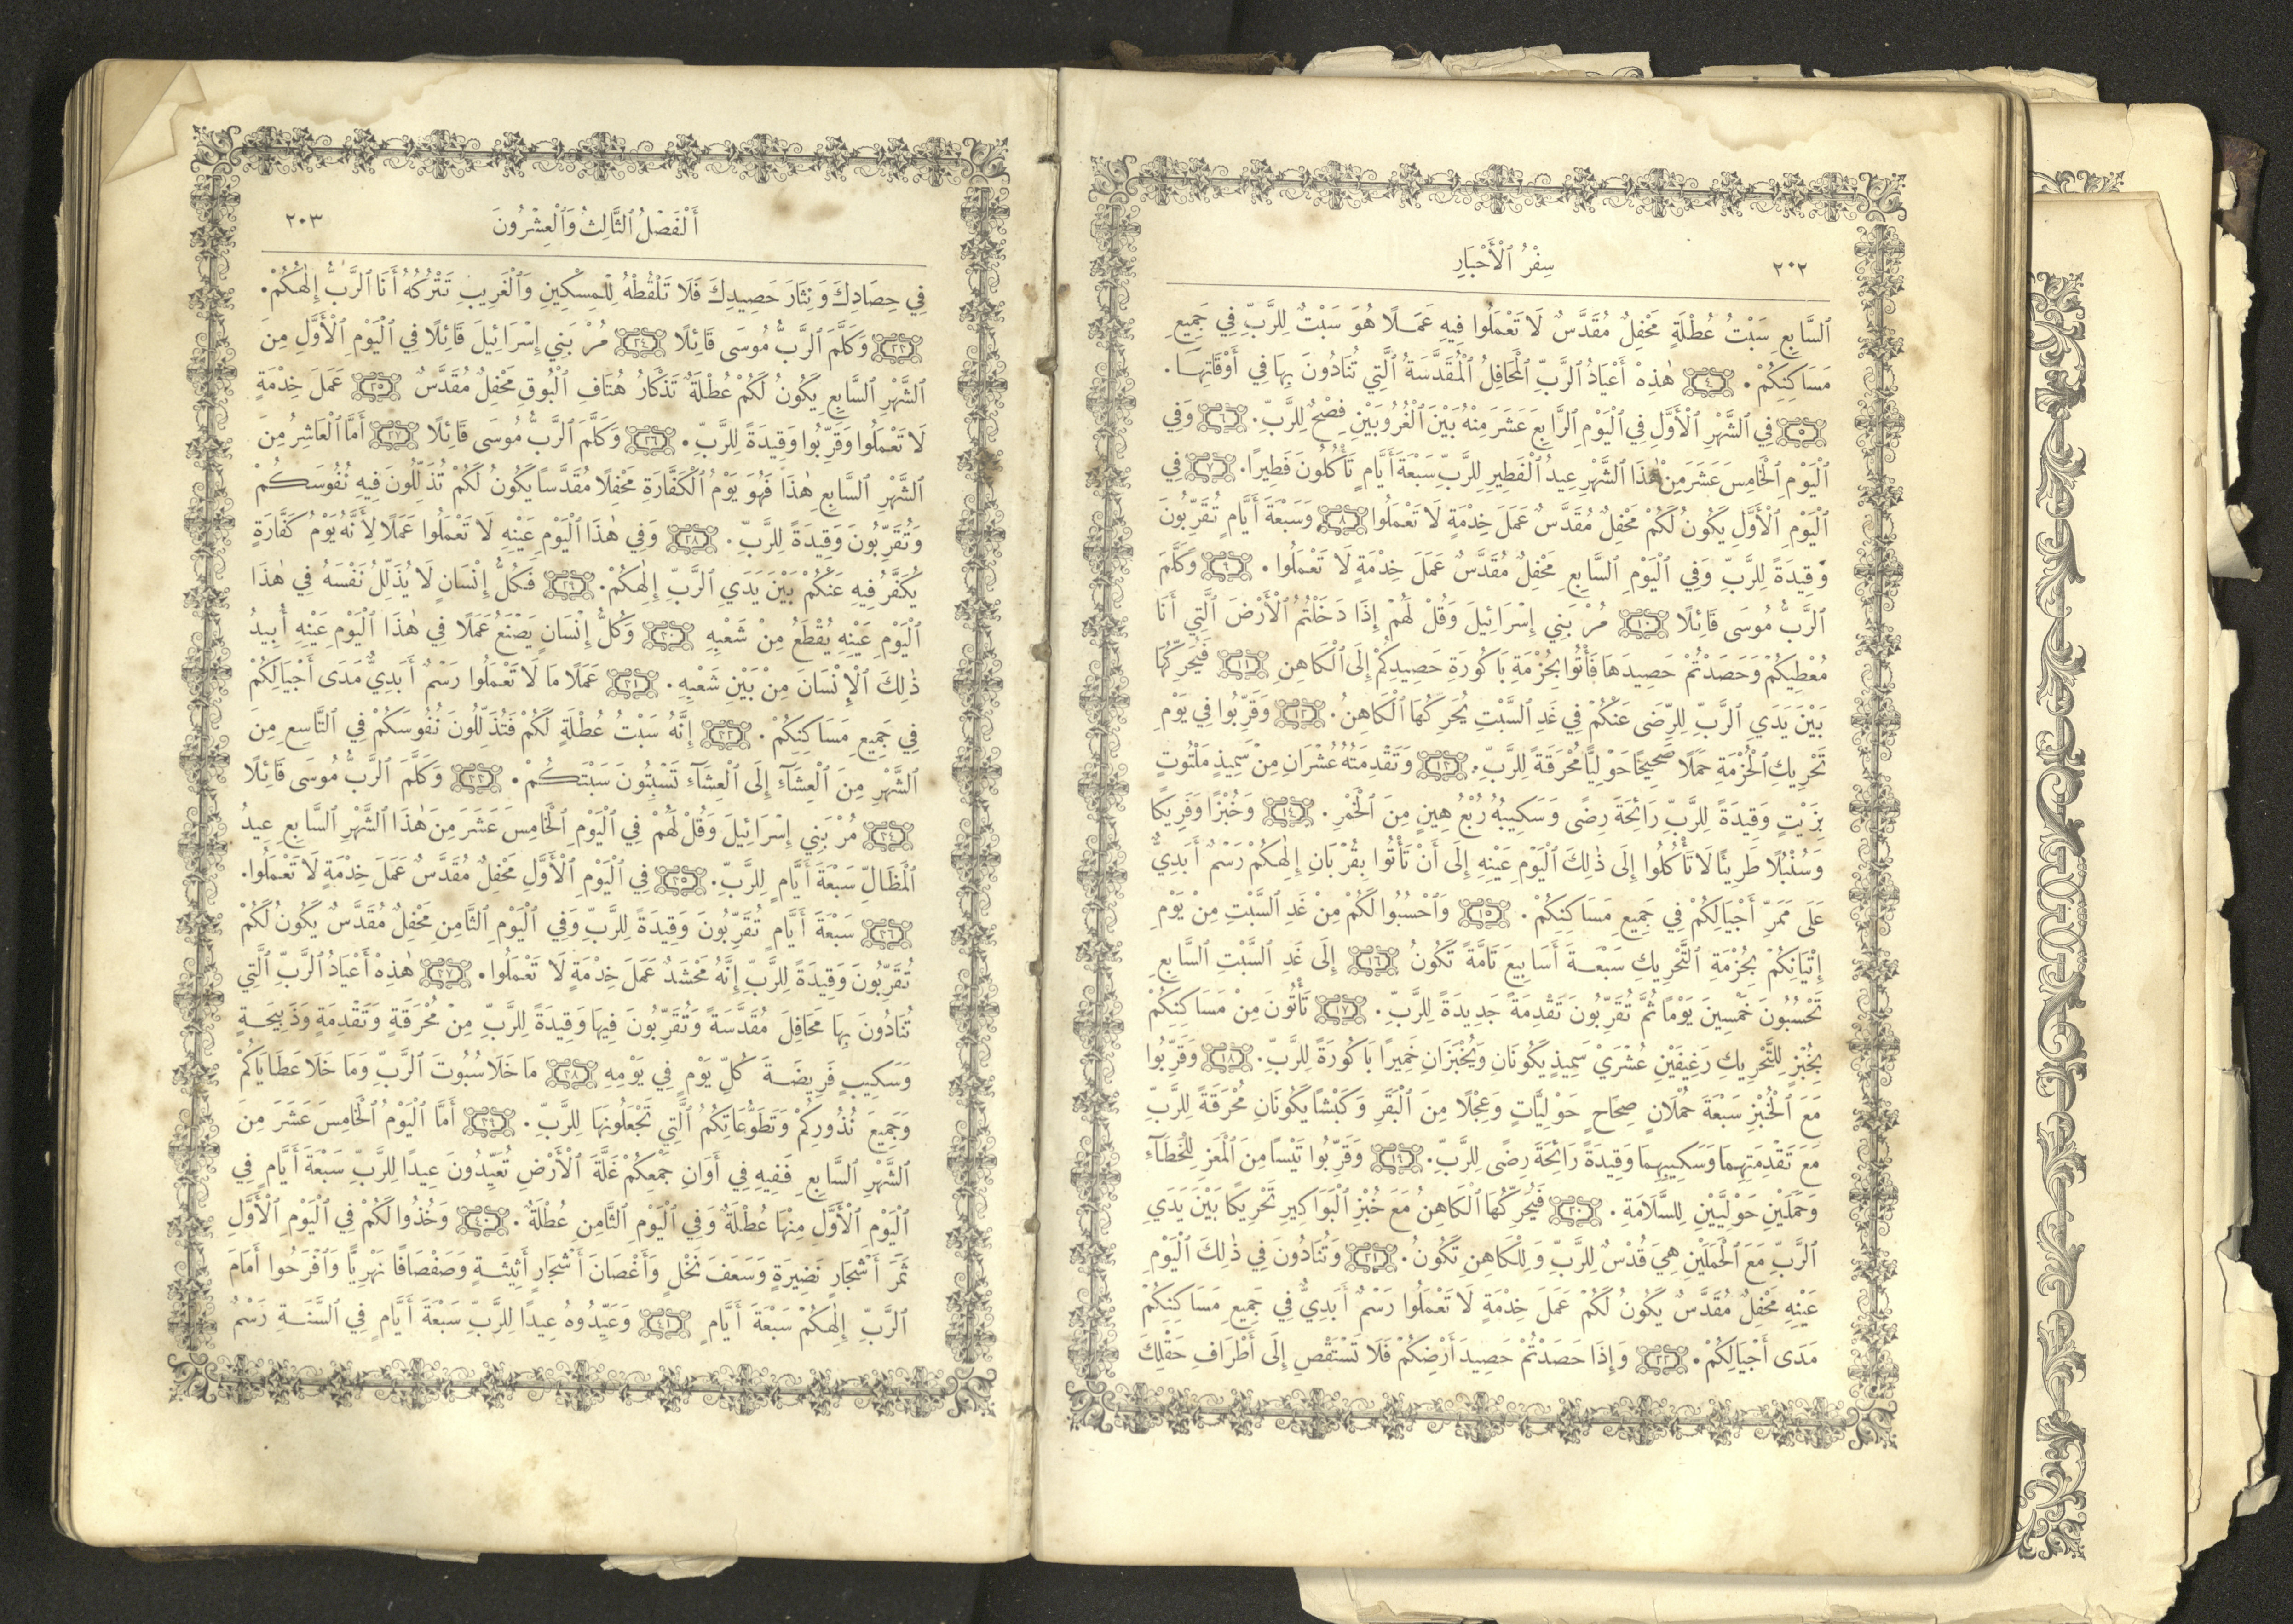 ٢٠٢ سِفْرُ ٱلْأَحْبَارِ
ٱلسَّابِعِ سَبْتُ عُطْلَةٍ مَحْفِلٌ مُقَدَّسٌ لَا تَعْمَلُوا فِيهِ عَمَلًا هُوَ سَبْتٌ لِلرَّبِّ فِي جَمِيعِ
مَسَاكِنِكُمْ. ﴿٤﴾ هٰذِهْ أَعْيَادُ ٱلرَّبِّ ٱلْمَحَافِلُ ٱلْمُقَدَّسَةُ ٱلَّتِي تُنَادُونَ بِهَا فِي أَوْقَاتِهَا.
﴿٥﴾ فِي ٱلشَّهْرِ ٱلْأَوَّلِ فِي ٱلْيَوْمِ ٱلرَّابِعَ عَشَرَ مِنْهُ بَيْنَ ٱلْغُرُوبَيْنِ فِصْحٌ لِلرَّبِّ. ﴿٦﴾ وَفِي
ٱلْيَوْمِ ٱلْخَامِسَ عَشَرَ مِنْ هٰذَا ٱلشَّهْرِ عِيدُ ٱلْفَطِيرِ لِلرَّبِّ سَبْعَةَ أَيَّامٍ تَأْكُلُونَ فَطِيرًا. ﴿٧﴾ فِي
ٱلْيَوْمِ ٱلْأَوَّلِ يَكُونُ لَكُمْ مَحْفِلٌ مُقَدَّسٌ عَمَلَ خِدْمَةٍ لَا تَعْمَلُوا ﴿٨﴾ وَسَبْعَةَ أَيَّامٍ تُقَرِّبُونَ
وَقِيدَةً لِلرَّبِّ وَفِي ٱلْيَوْمِ ٱلسَّابِعِ مَحْفِلٌ مُقَدَّسٌ عَمَلَ خِدْمَةٍ لَا تَعْمَلُوا. ﴿٩﴾ وَكَلَّمَ
ٱلرَّبُّ مُوسَى قَائِلًا ﴿١٠﴾ مُرْ بَنِي إِسْرَائِيلَ وَقُلْ لَهُمْ إِذَا دَخَلْتُمُ ٱلْأَرْضَ ٱلَّتِي أَنَا
مُعْطِيكُمْ وَحَصَدْتُمْ حَصِيدَهَا فَأْتُوا بِحُزْمَةِ بَاكُورَةِ حَصِيدِكُمْ إِلَى ٱلْكَاهِنِ ﴿١١﴾ فَيُحَرِّكُهَا
بَيْنَ يَدَيِ ٱلرَّبِّ لِلرِّضَى عَنْكُمْ فِي غَدِ ٱلسَّبْتِ يُحَرِّكُهَا ٱلْكَاهِنُ. ﴿١٢﴾ وَقَرِّبُوا فِي يَوْمِ
تَحْرِيكِ ٱلْحُزْمَةِ حَمَلًا صَحِيحًا حَوْلِيًّا مُحْرَقَةً لِلرَّبِّ. ﴿١٣﴾ وَتَقْدِمَتُهُ عُشْرَانِ مِنْ سَمِيذٍ مَلْتُوتٍ
بِزَيْتٍ وَقِيدَةً لِلرَّبِّ رَائِحَةَ رِضًى وَسَكِيبُهُ رُبْعُ هِينٍ مِنَ ٱلْخَمْرِ. ﴿١٤﴾ وَخُبْزًا وَفَرِيكًا
وَسُنْبُلًا طَرِيئًا لَا تَأْكُلُوا إِلَى ذٰلِكَ ٱلْيَوْمِ عَيْنِهِ إِلَى أَنْ تَأْتُوا بِقُرْبَانِ إِلٰهِكُمْ رَسْمٌ أَبَدِيٌّ
عَلَى مَمَرِّ أَجْيَالِكُمْ فِي جَمِيعِ مَسَاكِنِكُمْ. ﴿١٥﴾ وَٱحْسُبُوا لَكُمْ مِنْ غَدِ ٱلسَّبْتِ مِنْ يَوْمِ
إِتْيَانِكُمْ بِحُزْمَةِ ٱلتَّحْرِيكِ سَبْعَةَ أَسَابِيعَ تَامَّةً تَكُونُ ﴿١٦﴾ إِلَى غَدِ ٱلسَّبْتِ ٱلسَّابِعِ
تَحْسُبُونَ خَمْسِينَ يَوْمًا ثُمَّ تُقَرِّبُونَ تَقْدِمَةً جَدِيدَةً لِلرَّبِّ. ﴿١٧﴾ تَأْتُونَ مِنْ مَسَاكِنِكُمْ
بِخُبْزٍ لِلتَّحْرِيكِ رَغِيفَيْنِ عُشْرَيْ سَمِيذٍ يَكُونَانِ وَيُخْبَزَانِ خَمِيرًا بَاكُورَةً لِلرَّبِّ. ﴿١٨﴾ وَقَرِّبُوا
مَعَ ٱلْخُبْزِ سَبْعَةَ حُمْلَانٍ صِحَاحٍ حَوْلِيَّاتٍ وَعِجْلًا مِنَ ٱلْبَقَرِ وَكَبْشًا يَكُونَانِ مُحْرَقَةً لِلرَّبِّ
مَعَ تَقْدِمَتِهِمَا وَسَكِيبِهِمَا وَقِيدَةً رَائِحَةَ رِضًى لِلرَّبِّ. ﴿١٩﴾ وَقَرِّبُوا تَيْسًا مِنَ ٱلْمَعَزِ لِلْخَطَآءِ
وَحَمَلَيْنِ حَوْلِيَّيْنِ لِلسَّلَامَةِ. ﴿٢٠﴾ فَيُحَرِّكُهَا ٱلْكَاهِنُ مَعَ خُبْزِ ٱلْبَوَاكِيرِ تَحْرِيكًا بَيْنَ يَدَيِ
ٱلرَّبِّ مَعَ ٱلْحَمَلَيْنِ هِيَ قُدْسٌ لِلرَّبِّ وَلِلْكَاهِنِ تَكُونُ. ﴿٢١﴾ وَتُنَادُونَ فِي ذٰلِكَ ٱلْيَوْمِ
عَيْنِهِ مَحْفِلٌ مُقَدَّسٌ يَكُونُ لَكُمْ عَمَلَ خِدْمَةٍ لَا تَعْمَلُوا رَسْمٌ أَبَدِيٌّ فِي جَمِيعِ مَسَاكِنِكُمْ
مَدَى أَجْيَالِكُمْ. ﴿٢٢﴾ وَإِذَا حَصَدْتُمْ حَصِيدَ أَرْضِكُمْ فَلَا تَسْتَقْصِ إِلَى أَطْرَافِ حَقْلِكَ
أَلْفَصْلُ ٱلثَّالِثُ وَٱلْعِشْرُونَ ٢٠٣
فِي حِصَادِكَ وَنِثَارَ حَصِيدِكَ فَلَا تَلْقُطْهُ لِلْمِسْكِينِ وَٱلْغَرِيبِ تَتْرُكُهُ أَنَا ٱلرَّبُّ إِلٰهُكُمْ.
﴿٢٣﴾ وَكَلَّمَ ٱلرَّبُّ مُوسَى قَائِلًا ﴿٢٤﴾ مُرْ بَنِي إِسْرَائِيلَ قَائِلًا فِي ٱلْيَوْمِ ٱلْأَوَّلِ مِنَ
ٱلشَّهْرِ ٱلسَّابِعِ يَكُونُ لَكُمْ عُطْلَةٌ تَذْكَارُ هُتَافِ ٱلْبُوقِ مَحْفِلٌ مُقَدَّسٌ ﴿٢٥﴾ عَمَلَ خِدْمَةٍ
لَا تَعْمَلُوا وَقَرِّبُوا وَقِيدَةً لِلرَّبِّ. ﴿٢٦﴾ وَكَلَّمَ ٱلرَّبُّ مُوسَى قَائِلًا ﴿٢٧﴾ أَمَّا ٱلْعَاشِرُ مِنَ
ٱلشَّهْرِ ٱلسَّابِعِ هٰذَا فَهُوَ يَوْمُ ٱلْكَفَّارَةِ مَحْفِلًا مُقَدَّسًا يَكُونُ لَكُمْ تُذَلِّلُونَ فِيهِ نُفُوسَكُمْ
وَتُقَرِّبُونَ وَقِيدَةً لِلرَّبِّ. ﴿٢٨﴾ وَفِي هٰذَا ٱلْيَوْمِ عَيْنِهِ لَا تَعْمَلُوا عَمَلًا لِأَنَّهُ يَوْمُ كَفَّارَةٍ
يُكَفَّرُ فِيهِ عَنْكُمْ بَيْنَ يَدَيِ ٱلرَّبِّ إِلٰهِكُمْ. ﴿٢٩﴾ فَكُلُّ إِنْسَانٍ لَا يُذَلِّلُ نَفْسَهُ فِي هٰذَا
ٱلْيَوْمِ عَيْنِهِ يُقْطَعُ مِنْ شَعْبِهِ ﴿٣٠﴾ وَكُلُّ إِنْسَانٍ يَصْنَعُ عَمَلًا فِي هٰذَا ٱلْيَوْمِ عَيْنِهِ أُبِيدُ
ذٰلِكَ ٱلْإِنْسَانَ مِنْ بَيْنِ شَعْبِهِ. ﴿٣١﴾ عَمَلًا مَا لَا تَعْمَلُوا رَسْمٌ أَبَدِيٌّ مَدَى أَجْيَالِكُمْ
فِي جَمِيعِ مَسَاكِنِكُمْ. ﴿٣٢﴾ إِنَّهُ سَبْتُ عُطْلَةٍ لَكُمْ فَتُذَلِّلُونَ نُفُوسَكُمْ فِي ٱلتَّاسِعِ مِنَ
ٱلشَّهْرِ مِنَ ٱلْعِشَآءِ إِلَى ٱلْعِشَآءِ تَسْبِتُونَ سَبْتَكُمْ. ﴿٣٣﴾ وَكَلَّمَ ٱلرَّبُّ مُوسَى قَائِلًا
﴿٣٤﴾ مُرْ بَنِي إِسْرَائِيلَ وَقُلْ لَهُمْ فِي ٱلْيَوْمِ ٱلْخَامِسَ عَشَرَ مِنَ هٰذَا ٱلشَّهْرِ ٱلسَّابِعِ عِيدُ
ٱلْمَظَالِّ سَبْعَةَ أَيَّامٍ لِلرَّبِّ. ﴿٣٥﴾ فِي ٱلْيَوْمِ ٱلْأَوَّلِ مَحْفِلٌ مُقَدَّسٌ عَمَلَ خِدْمَةٍ لَا تَعْمَلُوا.
﴿٣٦﴾ سَبْعَةَ أَيَّامٍ تُقَرِّبُونَ وَقِيدَةً لِلرَّبِّ وَفِي ٱلْيَوْمِ ٱلثَّامِنِ مَحْفِلٌ مُقَدَّسٌ يَكُونُ لَكُمْ
تُقَرِّبُونَ وَقِيدَةً لِلرَّبِّ إِنَّهُ مَحْشَدٌ عَمَلَ خِدْمَةٍ لَا تَعْمَلُوا. ﴿٣٧﴾ هٰذِهْ أَعْيَادُ ٱلرَّبِّ ٱلَّتِي
تُنَادُونَ بِهَا مَحَافِلَ مُقَدَّسَةً وَتُقَرِّبُونَ فِيهَا وَقِيدَةً لِلرَّبِّ مِنْ مُحْرَقَةٍ وَتَقْدِمَةٍ وَذَبِيحَةٍ
وَسَكِيبٍ فَرِيضَةَ كُلِّ يَوْمٍ فِي يَوْمِهِ ﴿٣٨﴾ مَا خَلَا سُبُوتَ ٱلرَّبِّ وَمَا خَلَا عَطَايَاكُمْ
وَجَمِيعَ نُذُورِكُمْ وَتَطَوُّعَاتِكُمُ ٱلَّتِي تَجْعَلُونَهَا لِلرَّبِّ. ﴿٣٩﴾ أَمَّا ٱلْيَوْمُ ٱلْخَامِسَ عَشَرَ مِنَ
ٱلشَّهْرِ ٱلسَّابِعِ فَفِيهِ فِي أَوَانِ جَمْعِكُمْ غَلَّةَ ٱلْأَرْضِ تُعَيِّدُونَ عِيدًا لِلرَّبِّ سَبْعَةَ أَيَّامٍ فِي
ٱلْيَوْمِ ٱلْأَوَّلِ مِنْهَا عُطْلَةٌ وَفِي ٱلْيَوْمِ ٱلثَّامِنِ عُطْلَةٌ. ﴿٤٠﴾ وَخُذُوا لَكُمْ فِي ٱلْيَوْمِ ٱلْأَوَّلِ
ثَمَرَ أَشْجَارٍ نَضِيرَةٍ وَسَعَفَ نَخْلٍ وَأَغْصَانَ أَشْجَارٍ أَثِيثَةٍ وَصَفْصَافًا نَهْرِيًّا وَٱفْرَحُوا أَمَامَ
ٱلرَّبِّ إِلٰهِكُمْ سَبْعَةَ أَيَّامٍ ﴿٤١﴾ وَعَيِّدُوهُ عِيدًا لِلرَّبِّ سَبْعَةَ أَيَّامٍ فِي ٱلسَّنَةِ رَسْمٌ